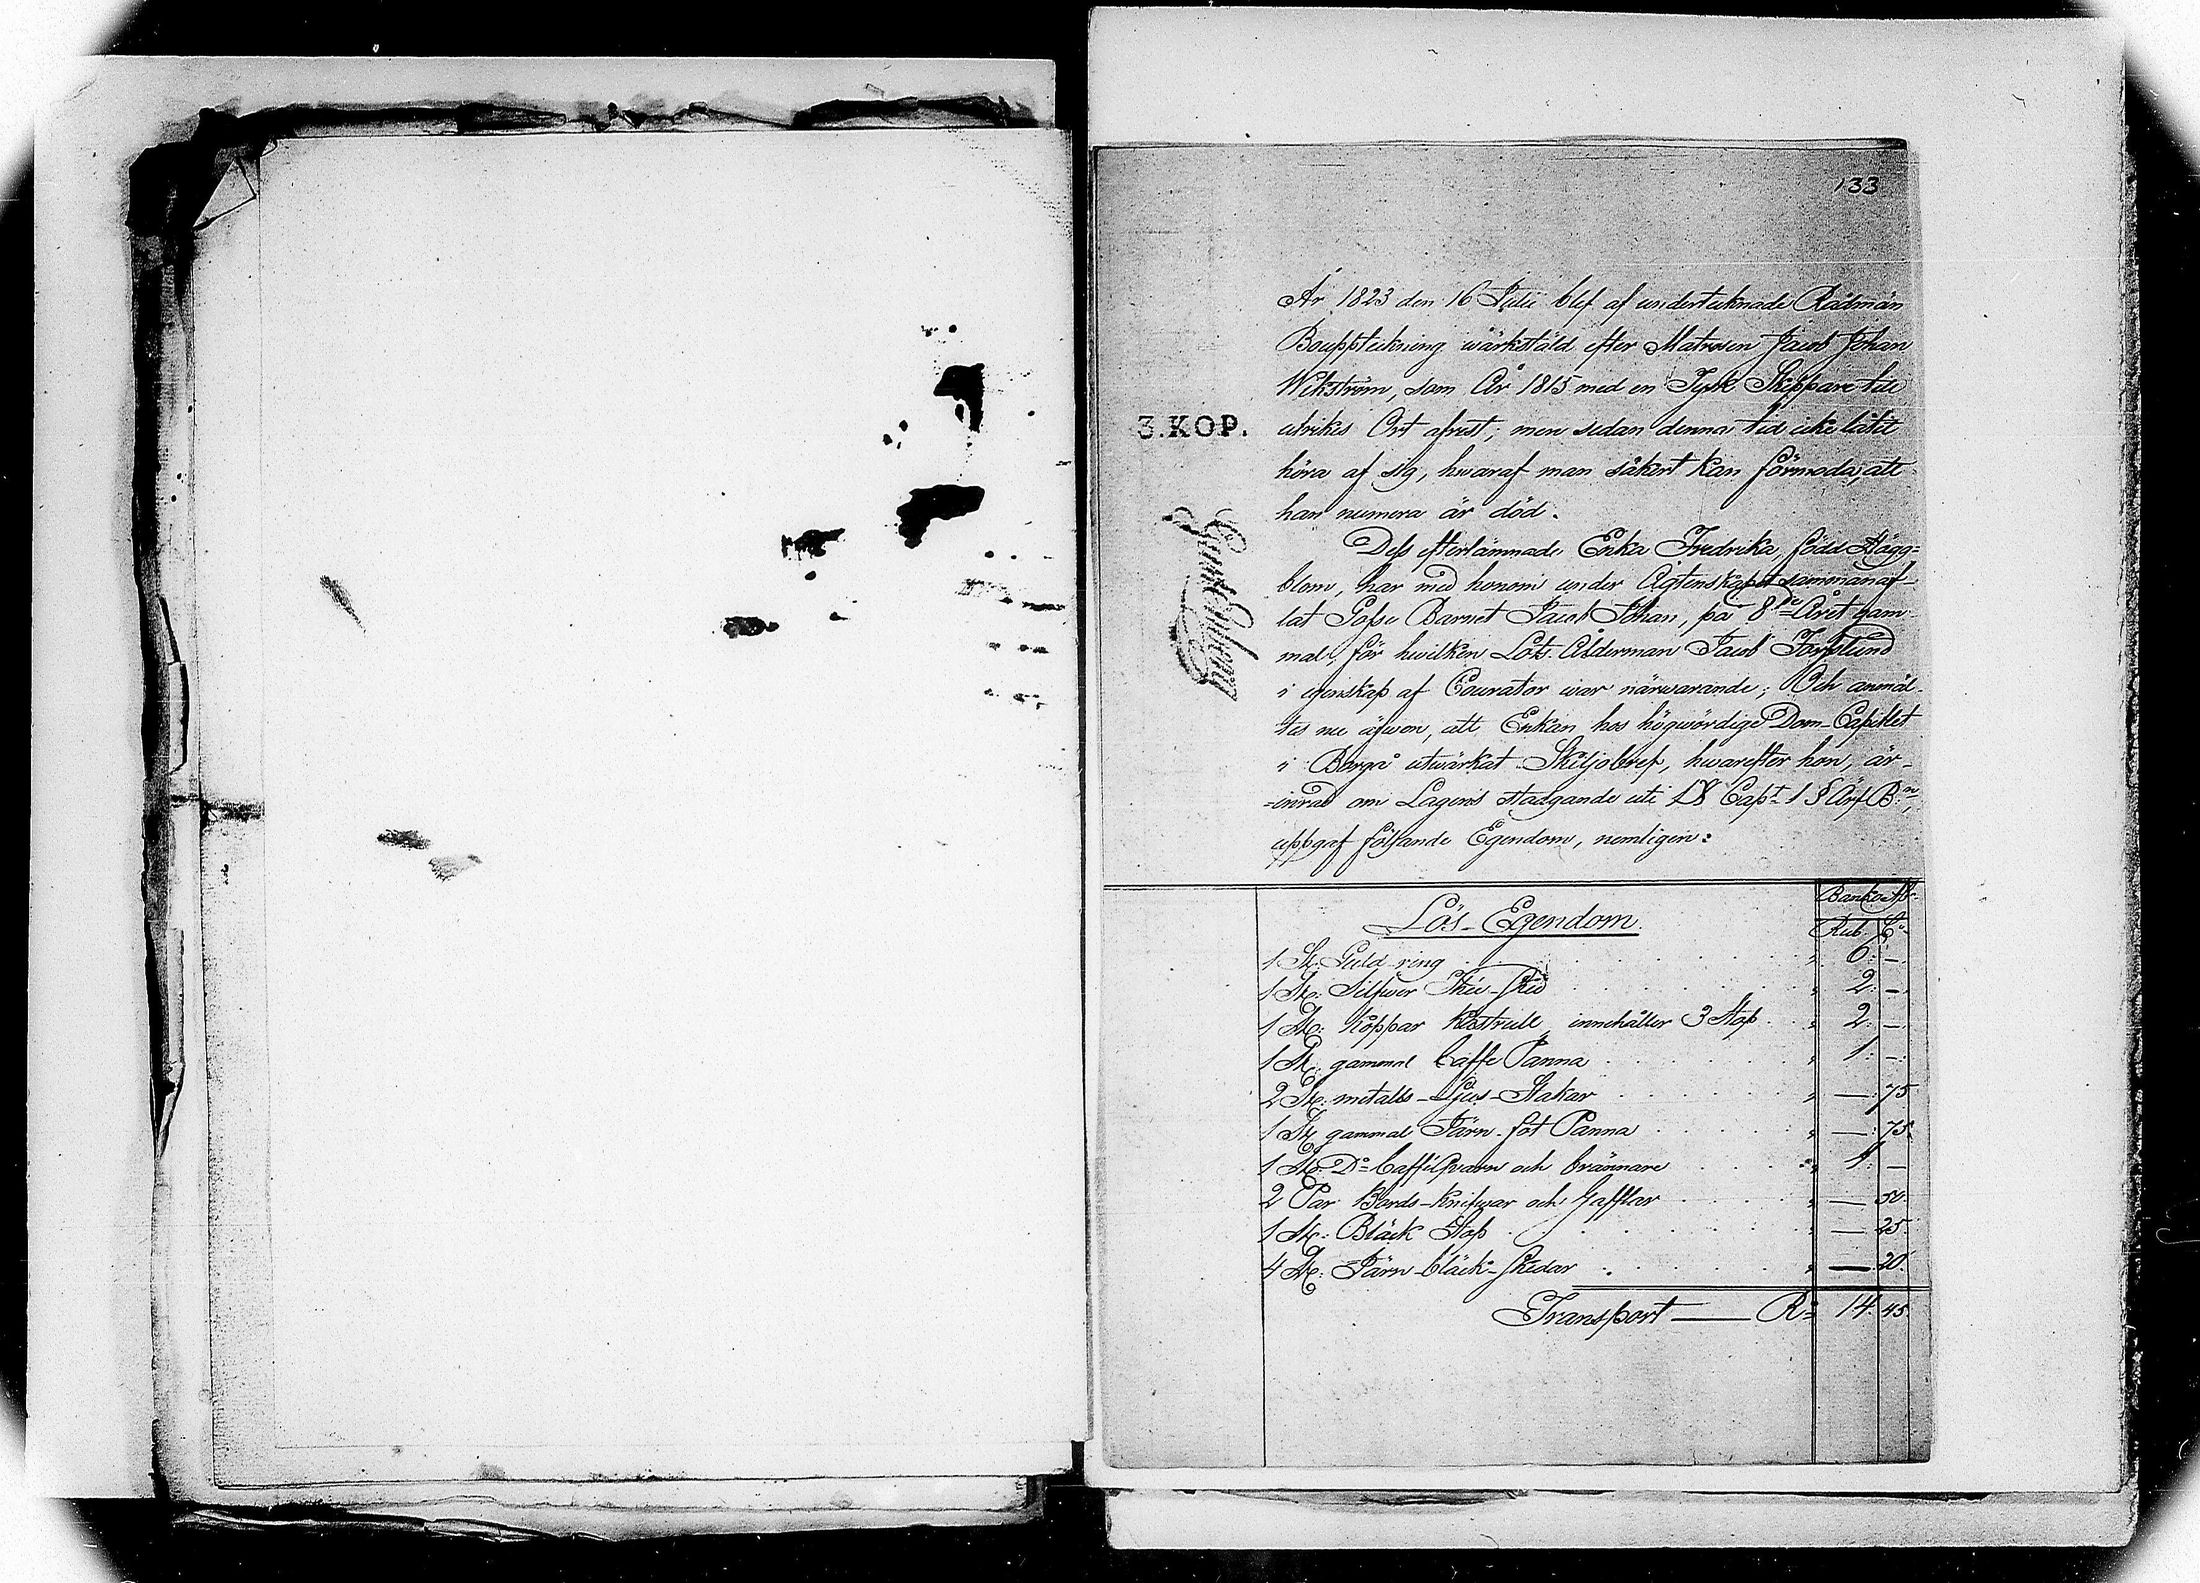 133
År 1823 den 16 Julii blef af undertecknade Rådmän
Bouppteckning wärkstäld efter Matrosen Jacob Johan
Wikström, som År 1815 med en Tysk Skeppare till
3.KOP.
utrikes Ort afrest, men sedan denna tid icke låtit
höra af sig, hwaraf man säkert kan förmoda, att
han numera är död.
Dess efterlämnade Enka Fredrika, född Hägg=
blom, har med honom under Ägtenskapet sammanaf-
lat Gosse Barnet Jacob Johan, på 8de Året gam-
mal, för hwilken Lots Ålderman Jacob Forsslund
i egenskap af Courator war närwarande; Och anmäl-
tes nu äfwen, att Enkan hos högwördige Dom-Capitlet
i Borgå utwärkat Skiljobref, hwarefter hon, är-
=inrad om Lagens stadgande uti 18 Capt 1 § Ärf. B:n,
uppgaf följande Egendom, nemligen:
Banko Ass:
Lös-Egendom.
Rub. Co
1 St: Guld ring 6: —
1 St: Silfwer The-sked 2: —
1 St: Koppar Kastrull, innehåller 3 Stop 2: —
1 St: gammal Caffe Panna 1: —
2 St: metalls-Ljus-Stakar — 75
1 St: gammal Järn-fot Panna — 75.
1 St: Do Caffe Qvarn och brännare 1: —
2 Par Bords-Knifwar och Gafflar — 50.
1 St: Bläck Stop — 25.
4 St: Järn-bläck-skedar — 20.
Transport — Ro 14. 45.